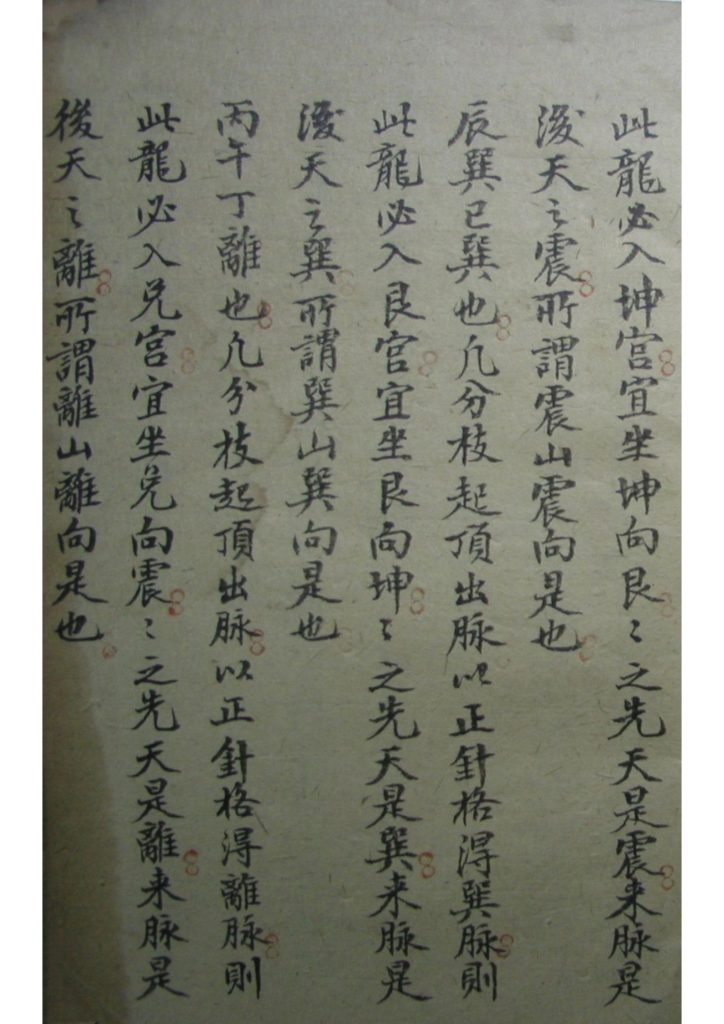 此龍必入坤宫宜坐坤向艮〻之先天是震来脉是
後天之震所謂震山震向是也
辰巽巳巽也凢分枝起頂出脉以正針格得巽脉則
此龍必入艮宫宜坐艮向坤〻之先天是巽来脉是
後天之巽所謂巽山巽向是也
丙午丁離也凢分枝起頂出脉以正針格得離脉則
此龍必入兑宫宜坐兑向震〻之先天是離来脉是
後天之離所謂離山離向是也